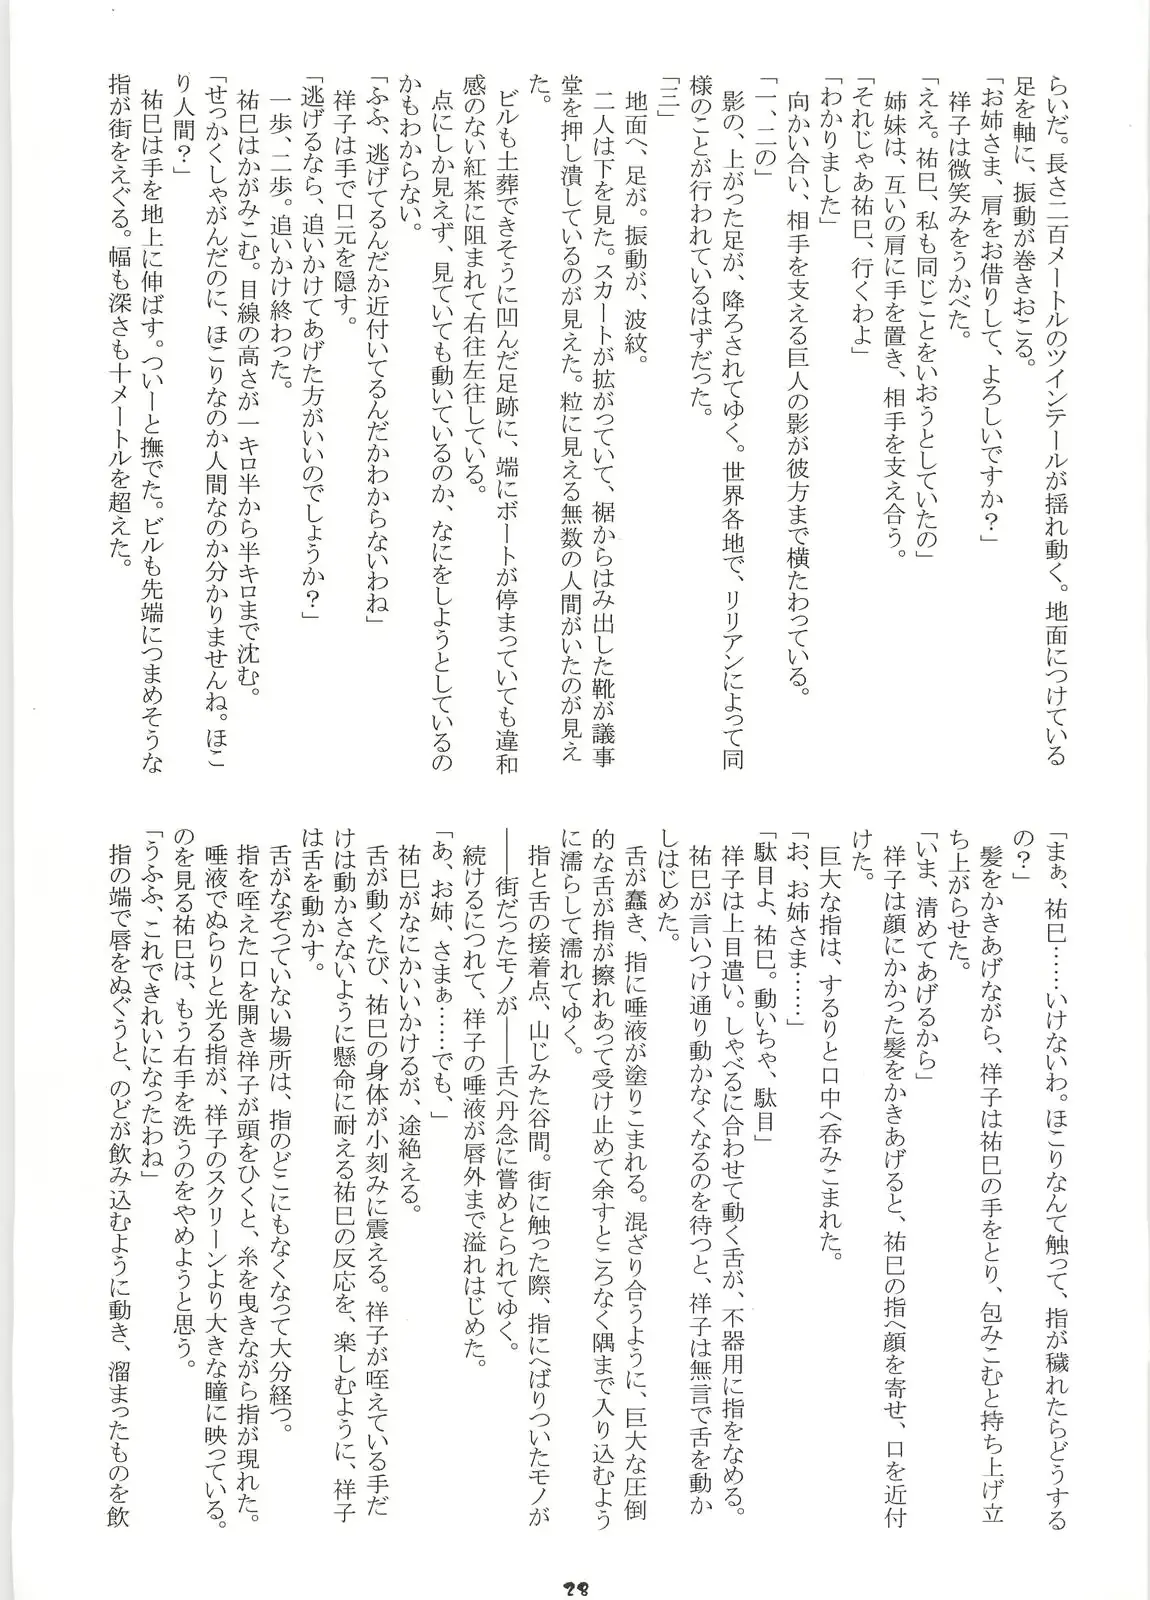 らいだ。長さ二百メートルのツインテールが揺れ動く。地面につけている
足を軸に、振動が巻きおこる。
「お姉さま、肩をお借りして、よろしいですか？」
祥子は微笑みをうかべた。
「ええ。祐巳、私も同じことをいおうとしていたの」
姉妹は、互いの肩に手を置き、相手を支え合う。
「それじゃあ祐巳、行くわよ」
「わかりました」
向かい合い、相手を支える巨人の影が彼方まで横たわっている。
「一、二の」
影の、上がった足が、降ろされてゆく。世界各地で、リリアンによって同
様のことが行われているはずだった。
「三」
地面へ、足が。振動が、波紋。
二人は下を見た。スカートが拡がっていて、裾からはみ出した靴が議事
堂を押し潰しているのが見えた。粒に見える無数の人間がいたのが見え
た。
ビルも土葬できそうに凹んだ足跡に、端にボートが停まっていても違和
感のない紅茶に阻まれて右往左往している。
点にしか見えず、見ていても動いているのか、なにをしようとしているの
かもわからない。
「ふふ、逃げてるんだか近付いてるんだかわからないわね」
祥子は手で口元を隠す。
「逃げるなら、追いかけてあげた方がいいのでしょうか？」
一歩、二歩。追いかけ終わった。
祐巳はかがみこむ。目線の高さが一キロ半から半キロまで沈む。
「せっかくしゃがんだのに、ほこりなのか人間なのか分かりませんね。ほこ
り人間？」
祐巳は手を地上に伸ばす。ついーと撫でた。ビルも先端につまめそうな
指が街をえぐる。幅も深さも十メートルを超えた。
「まぁ、祐巳……いけないわ。ほこりなんて触って、指が穢れたらどうする
の？」
髪をかきあげながら、祥子は祐巳の手をとり、包みこむと持ち上げ立
ち上がらせた。
「いま、清めてあげるから」
祥子は顔にかかった髪をかきあげると、祐巳の指へ顔を寄せ、口を近付
けた。
巨大な指は、するりと口中へ呑みこまれた。
「お、お姉さま……」
「駄目よ、祐巳。動いちゃ、駄目」
祥子は上目遣い。しゃべるに合わせて動く舌が、不器用に指をなめる。
祐巳が言いつけ通り動かなくなるのを待つと、祥子は無言で舌を動か
しはじめた。
舌が蠢き、指に唾液が塗りこまれる。混ざり合うように、巨大な圧倒
的な舌が指が擦れあって受け止めて余すところなく隅まで入り込むよう
に濡らして濡れてゆく。
指と舌の接着点、山じみた谷間。街に触った際、指にへばりついたモノが
――街だったモノが――舌へ丹念に嘗めとられてゆく。
続けるにつれて、祥子の唾液が唇外まで溢れはじめた。
「あ、お姉、さまぁ……でも、」
祐巳がなにかいいかけるが、途絶える。
舌が動くたび、祐巳の身体が小刻みに震える。祥子が咥えている手だ
けは動かさないように懸命に耐える祐巳の反応を、楽しむように、祥子
は舌を動かす。
舌がなぞっていない場所は、指のどこにもなくなって大分経つ。
指を咥えた口を開き祥子が頭をひくと、糸を曳きながら指が現れた。
唾液でぬらりと光る指が、祥子のスクリーンより大きな瞳に映っている。
のを見る祐巳は、もう右手を洗うのをやめようと思う。
「うふふ、これできれいになったわね」
指の端で唇をぬぐうと、のどが飲み込むように動き、溜まったものを飲
28